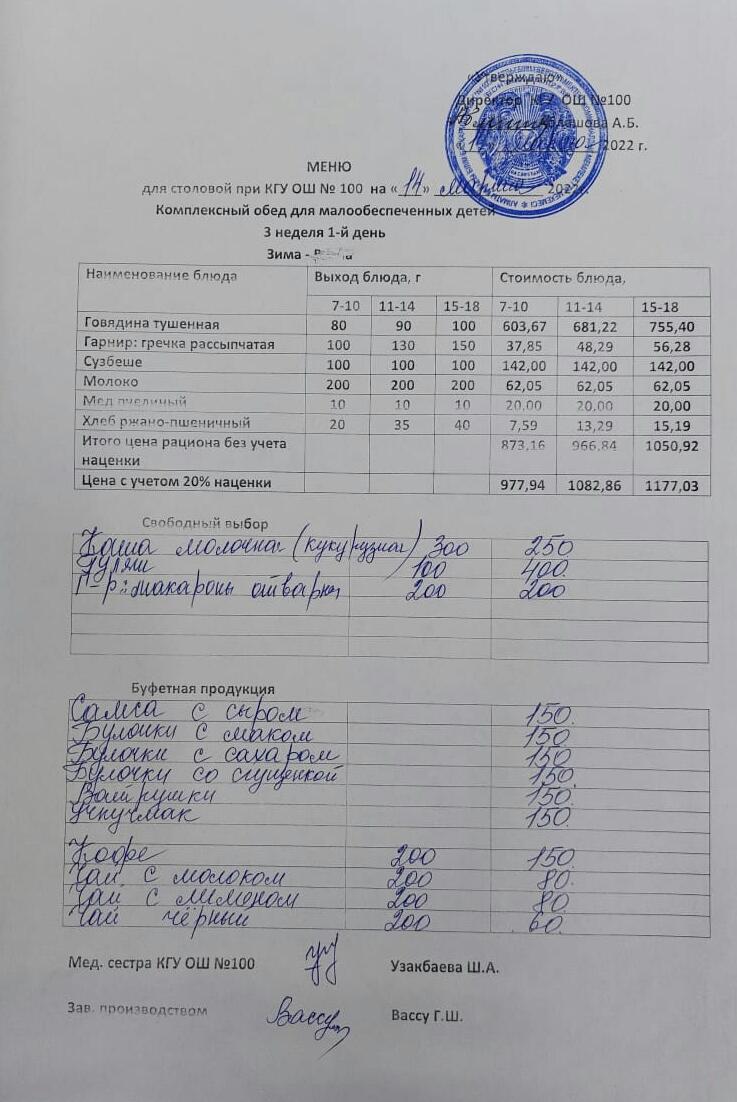 «Утверждаю»
Директор КГУ ОШ №100
А.Б.
2022 г.
МЕНЮ
для столовой при КГУ ОШ № 100 на «14» марта 2022
Комплексный обед для малообеспеченных детей
3 неделя 1-й день
Зима -
Наименование блюда Выход блюда, г Стоимость блюда,
7-10 11-14 15-18 7-10 11-14 15-18
Говядина тушенная 80 90 100 603,67 681,22 755,40
Гарнир: гречка рассыпчатая 100 130 150 37,85 48,29 56,28
Сузбеше 100 100 100 142,00 142,00 142,00
Молоко 200 200 200 62,05 62,05 62,05
Мед пчелиный 10 10 10 20,00 20,00 20,00
Хлеб ржано-пшеничный 20 35 40 7,59 13,29 15,19
Итого цена рациона без учета наценки 873,16 966,84 1050,92
Цена с учетом 20% наценки 977,94 1082,86 1177,03
Свободный выбор
Каша молочная (кукурузная) 300 250
Гуляш 100 400.
Г-р: макароны отварные 200 200
Буфетная продукция
Самса с сыром 150.
Булочки с маком 150.
Булочки с сахаром 150
Булочки со сгущенкой 150.
Ватрушки 150.
Учпучмак 150.
Кофе 200 150.
Чай с молоком 200 80.
Чай с лимоном 200 80.
Чай чёрный 200 60.
Мед. сестра КГУ ОШ №100 Узакбаева Ш.А.
Зав. производством Вассу Вассу Г.Ш.